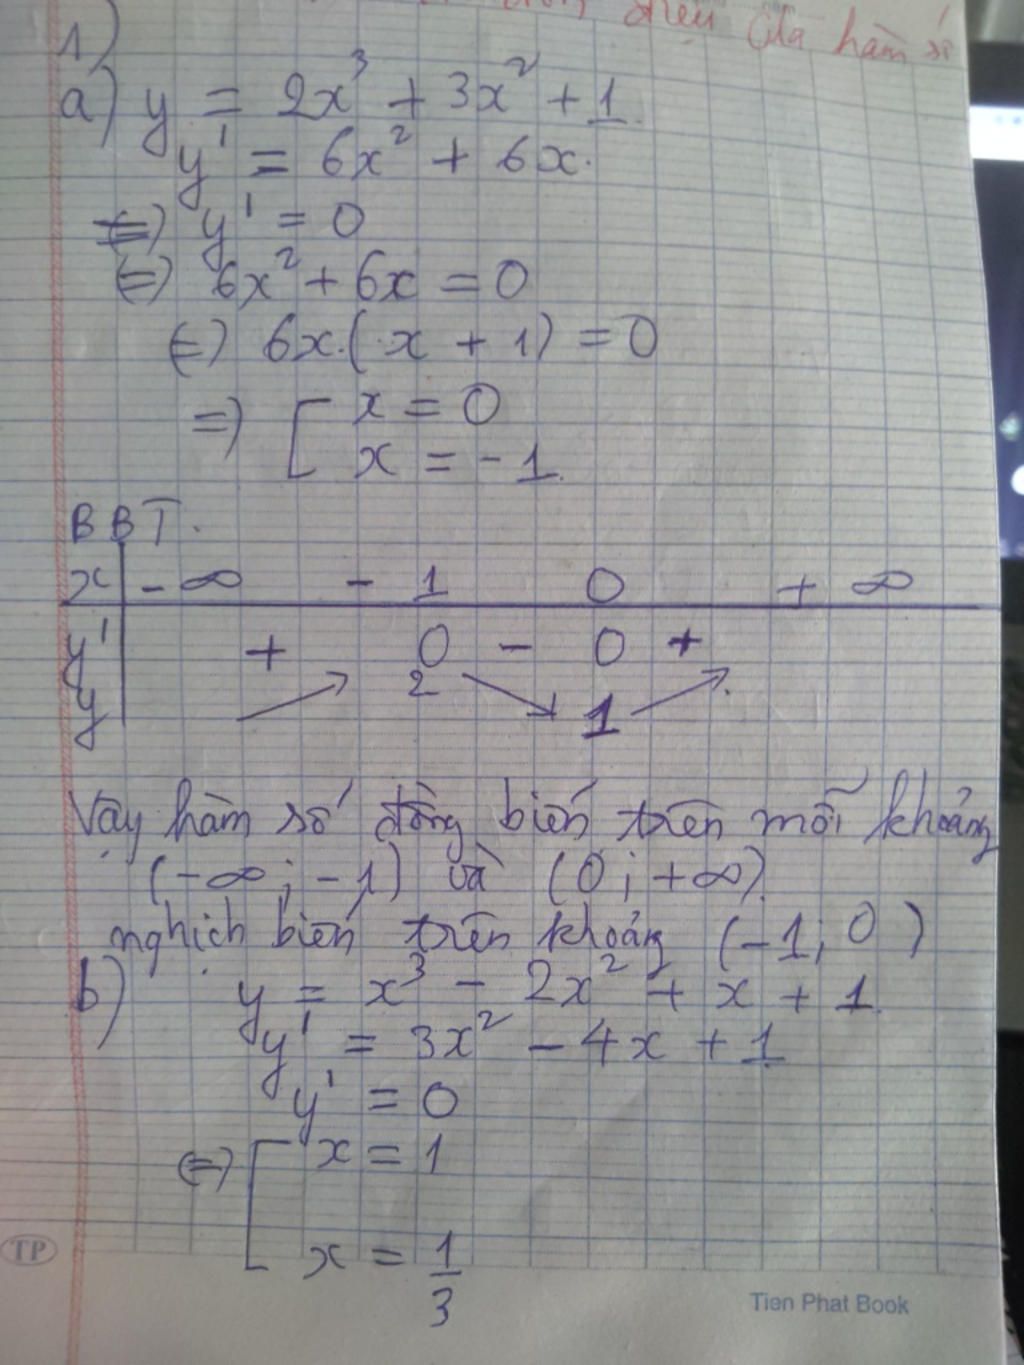 điệu của hàm số
1)
a) y = 2x³ + 3x² + 1.
y' = 6x² + 6x.
y' = 0
(=) 6x² + 6x = 0
(=) 6x.(x + 1) = 0
=) [ x = 0
x = -1.
BBT.
x - ∞ - 1 0 + ∞
y' + 0 - 0 +
y ↗ 2 ↘ 1 ↗
Vậy hàm số đồng biến trên mỗi khoảng
(-∞; -1) và (0; +∞).
nghịch biến trên khoảng (-1; 0)
b) y = x³ - 2x² + x + 1.
y' = 3x² - 4x + 1
y' = 0
(=) [ x = 1
x = 1/3
TP
Tien Phat Book